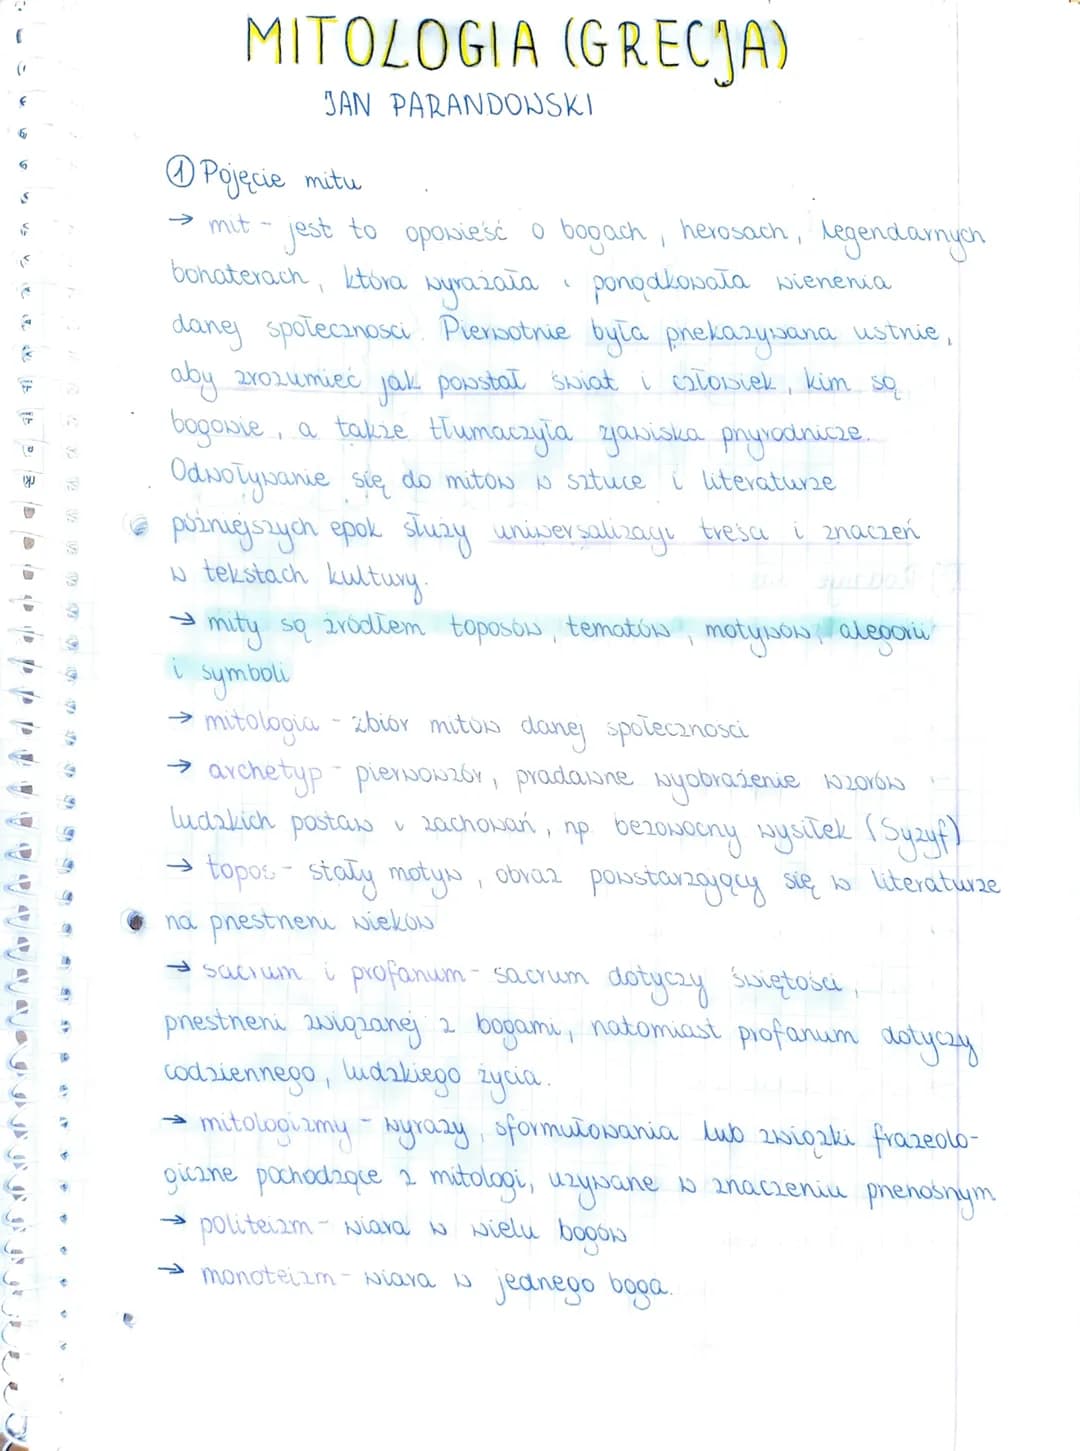 MITOLOGIA (GRECJA)
JAN PARANDOWSKI
① Pojęcie mitu
→ mit - jest to opowieść o bogach, herosach, legendarnych
bohaterach, która wyrażała i porządkowała wierzenia
danej społeczności. Pierwotnie była przekazywana ustnie,
aby zrozumieć jak powstał świat i człowiek, kim są
bogowie, a także tłumaczyła zjawiska przyrodnicze.
Odwoływanie się do mitów w sztuce i literaturze
późniejszych epok służy uniwersalizacji treści i znaczeń
w tekstach kultury.
→ mity są źródłem toposów, tematów, motywów, alegorii
i symboli
→ mitologia - zbiór mitów danej społeczności
→ archetyp - pierwowzór, pradawne wyobrażenie wzorów
ludzkich postaw i zachowań, np. bezowocny wysiłek (Syzyf)
→ topos - stały motyw, obraz powstarzający się w literaturze
na przestrzeni wieków
→ sacrum i profanum - sacrum dotyczy świętości,
przestrzeni związanej z bogami, natomiast profanum dotyczy
codziennego, ludzkiego życia.
→ mitologizmy - wyrazy, sformułowania lub związki frazeolo-
giczne pochodzące z mitologi, używane w znaczeniu przenośnym
→ politeizm - wiara w wielu bogów
→ monoteizm - wiara w jednego boga.